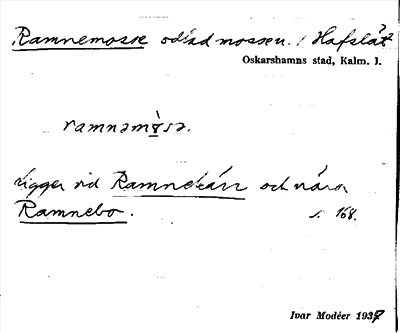 Ramnemosse odlad mossen. / Hafslätt
Oskarshamns stad, Kalm. l.
ramnəmòsə.
ligger vid Ramnekärr och nära
Ramnebo. s. 168.
Ivar Modéer 1937